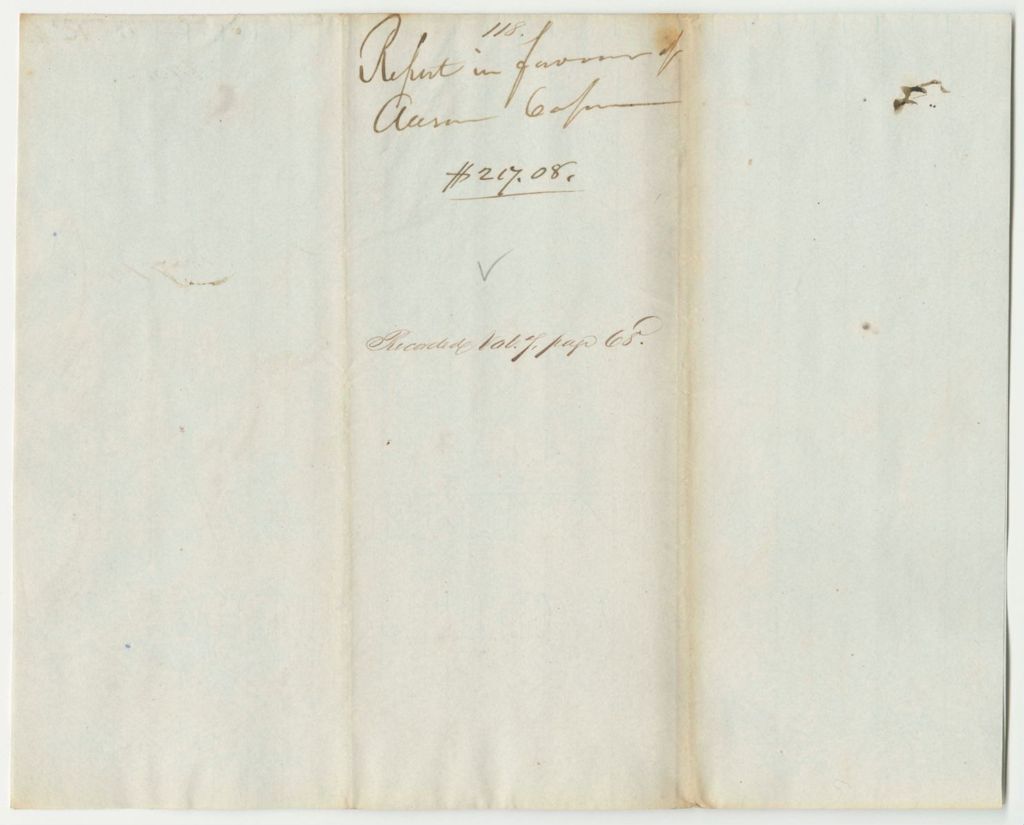 118.
Report in favour of
Aaron Capen
$217.08.
Recorded Vol. 7, page 68.